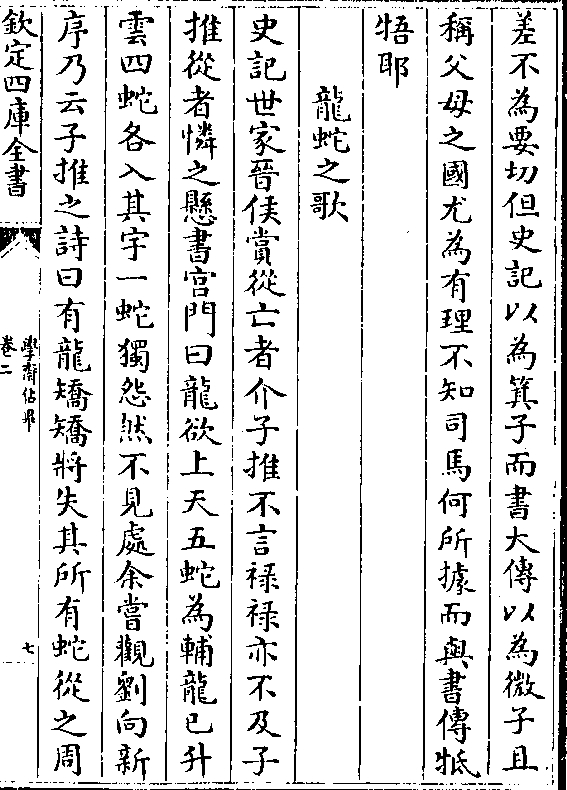 差不為要切但史記以為箕子而書大傳以為微子且
稱父母之國尤為有理不知司馬何所據而與書傳牴
牾耶
龍蛇之歌
史記世家晉侯賞從亡者介子推不言祿祿亦不及子
推從者憐之懸書宫門曰龍欲上天五蛇為輔龍已升
雲四蛇各入其宇一蛇獨怨然不見處余嘗觀劉向新
序乃云子推之詩曰有龍矯矯將失其所有蛇從之周
欽定四庫全書
學齋佔畢
卷二
七